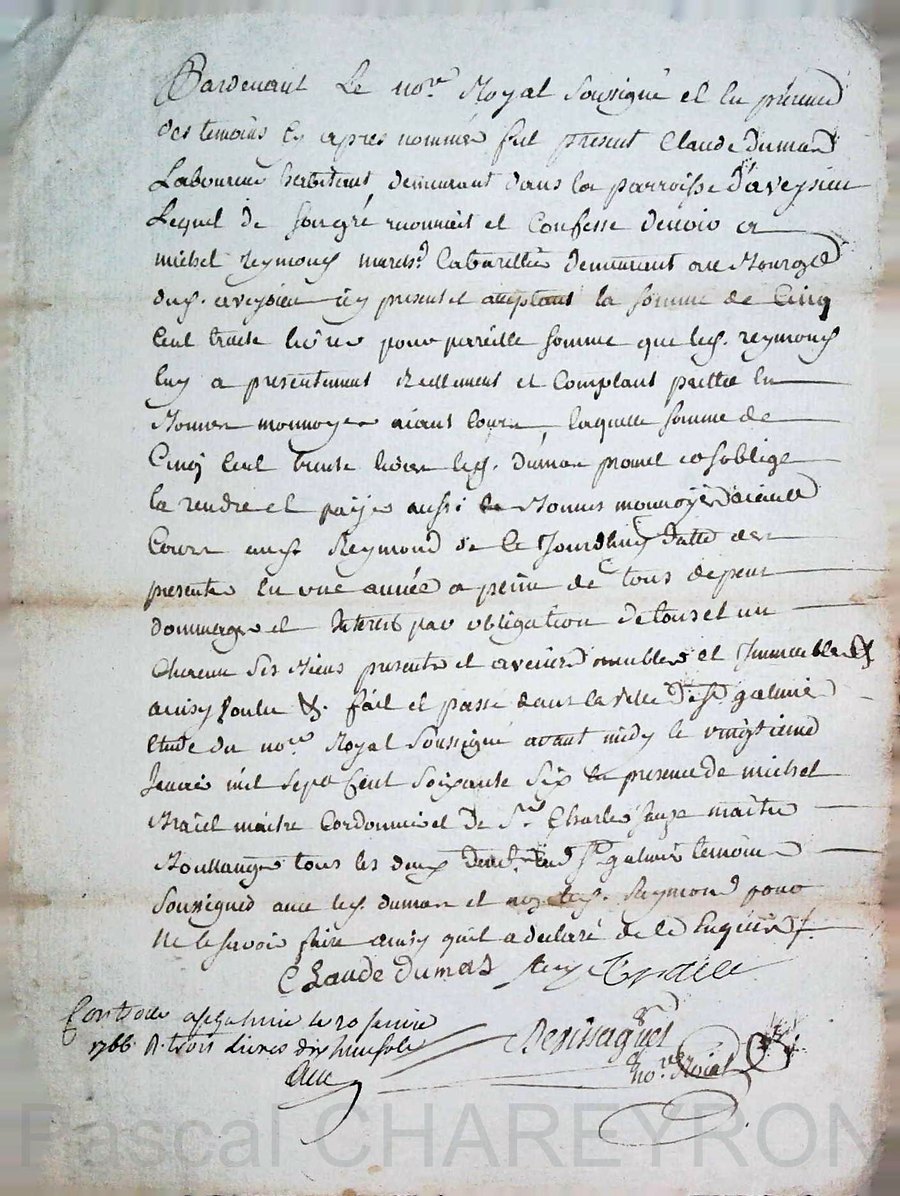 Pardevant Le no.re Royal Soussigné et en présence
des temoins cy apres nommés fut present Claude dumas
Laboureur habitant demeurant dans la parroisse d'aveysieu
Lequel de son gré reconnait et Confesse devoir a
michel Reymond march.d Cabarettier demeurant au Bourg
dud. aveysieu icy present et acceptant la somme de Cinq
Cent trente livres pour pareille somme que led. reymond
luy a presentement Reellement et Comptant prettée en
Bonnes monnoyes aiant Cours laquelle somme de
Cinq Cent trente livres led. dumas promet et s'oblige
la rendre et payer aussi en Bonnes monnoyes aiant
Cours aud. Reymond de ce Jourd'huy datte des
presentes en une année a peine de tous depens
dommages et Interets par obligation de tous et un
Chacun ses Biens presents et avenir meubles et Immeubles &
ainsy voulu &. fait et passé dans la ville de St galmier
Etude du no.re Royal Soussigné avant midy le vingtieme
Janvier mil sept Cent Soixante Six en presence de michel
maitre Cordonnier et de S.r Charle maitre
Boullanger tous les deux dud. St galmier temoins
Soussignés avec led. dumas et non led. Reymond pour
Ne le savoir faire ainsy qu'il a declaré de ce Enquis
Claude dumas
Controllé a St galmier le 20 Janvier
1766 R. trois Livres dix huit sols
no.re Roial
Pascal CHAREYRON